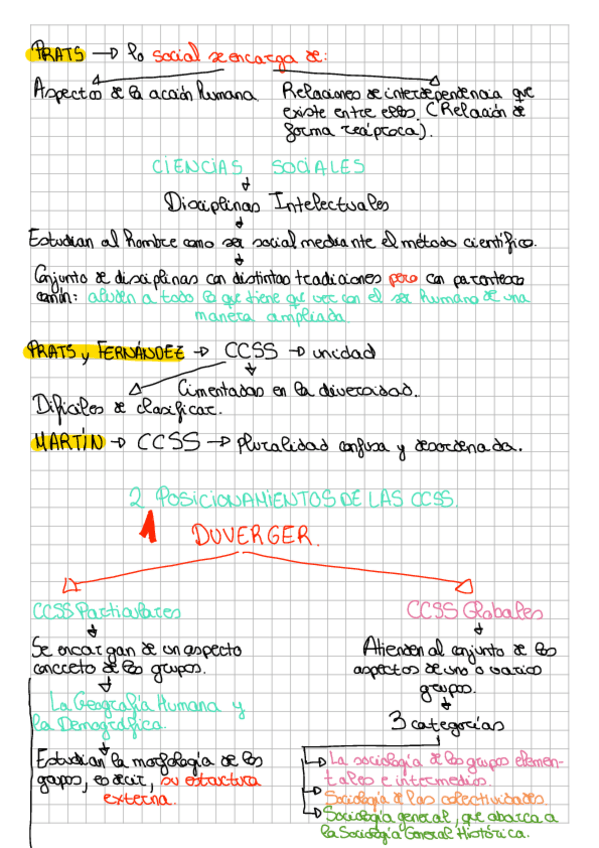 PRATS → lo social se encarga de:
Aspectos de la acción humana
Relaciones de interdependencia que
existe entre ellos. (Relación de
forma recíproca).
CIENCIAS SOCIALES
Disciplinas Intelectuales
Estudian al hombre como ser social mediante el método científico.
Conjunto de disciplinas con distintas tradiciones pero con parentesco
común: aluden a todo lo que tiene que ver con el ser humano de una
manera ampliada
PRATS y FERNÁNDEZ → CCSS → unidad
Cimentadas en la diversidad.
Difíciles de clasificar.
MARTÍN → CCSS → pluralidad confusa y desordenada.
2 POSICIONAMIENTOS DE LAS CCSS.
1 DUVERGER.
CCSS Particulares
Se encargan de un aspecto
concreto de los grupos.
La Geografía Humana y
la Demográfica.
Estudian la morfología de los
grupos, es decir, su estructura
externa.
CCSS Globales
Atienden al conjunto de los
aspectos de uno o varios
grupos.
3 categorías
La sociología de los grupos elemen-
tales e intermedios.
Sociología de las colectividades.
Sociología general, que abarca a
la Sociología General Histórica.